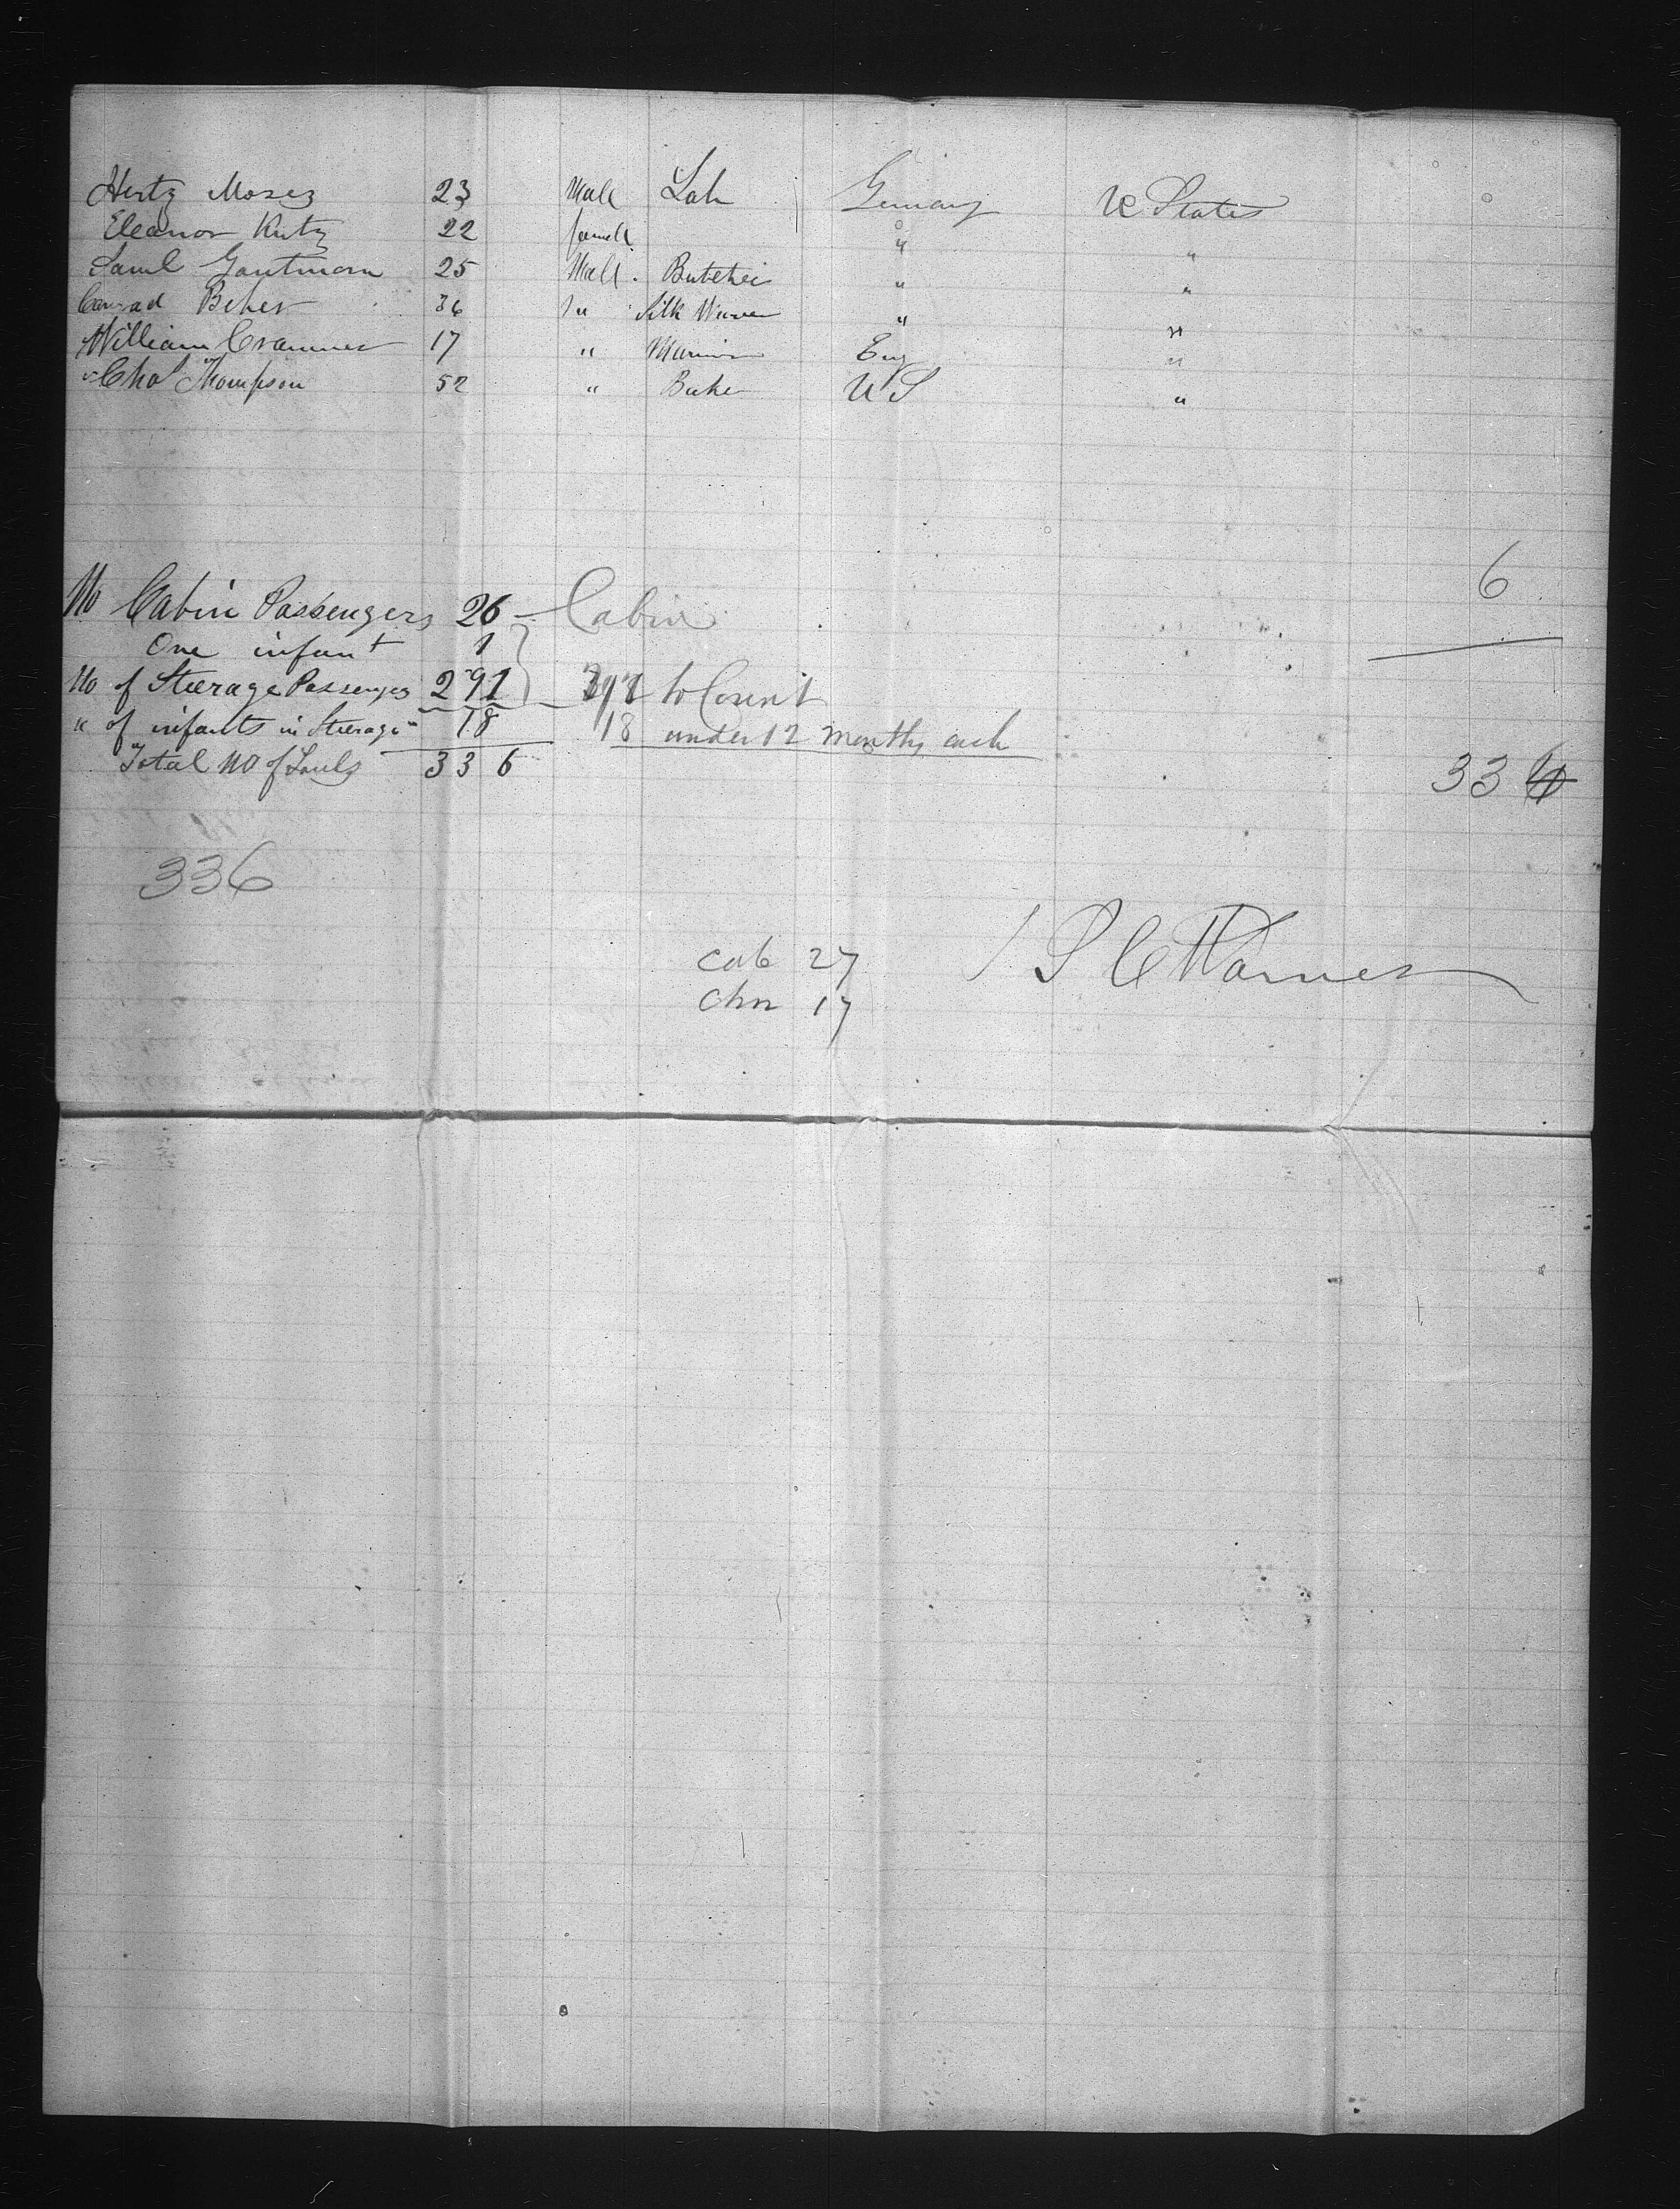 Hertz Moses 23 Male Lab Germany U States
Eleanor Kutz 22 femall " "
Saml Gontmorn 25 Mall. Butcher " "
Conrad Beker 36 " Silk Weaver " "
William Crammer 17 " Mariner Eng "
Chas Thompson 52 " Baker U S "
6
No Cabin Passengers 26 - Cabin
One infant 1
No of Steerage Passengers 291 to Count
" of infants in Steerage 18 18 under 12 months each
Total No of Souls 336
336
33
cab 27
chn 17
S C Warner